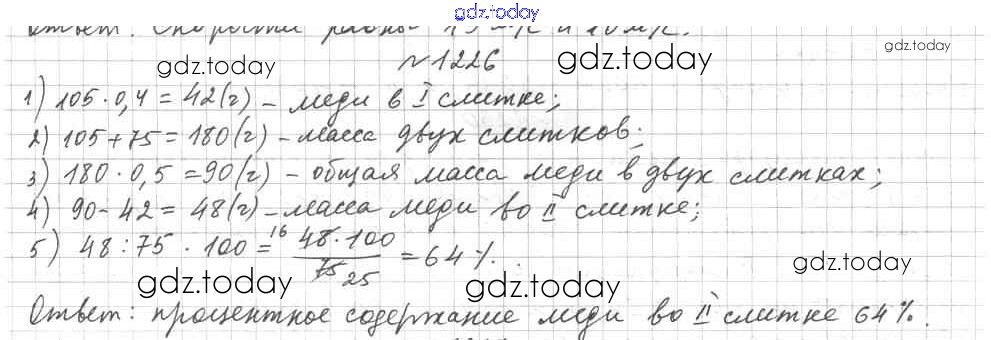 gdz.today
Ответ: Скорости равны 15 м/с и 10 м/с.
gdz.today
№ 1226
gdz.today gdz.today
1) 105 · 0,4 = 42 (г) – меди в I слитке;
2) 105 + 75 = 180 (г) – масса двух слитков;
3) 180 · 0,5 = 90 (г) – общая масса меди в двух слитках;
4) 90 - 42 = 48 (г) – масса меди во II слитке;
5) 48 : 75 · 100 = 16 48 · 100 / 75 25 = 64 %.
gdz.today gdz.today gdz.today
Ответ: процентное содержание меди во II слитке 64 %.